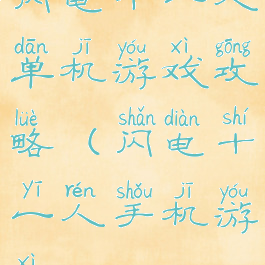 dān jī yóu xì gōng
单机游戏攻
lüè shǎn diàn shí
略（闪电十
yī rén shǒu jī yóu
一人手机游
xì